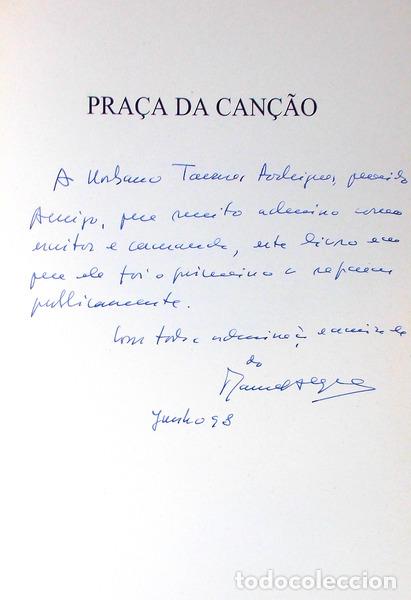 PRAÇA DA CANÇÃO
A Urbano Tavares Rodrigues, querido
Amigo, que muito admiro como
escritor e camarada, este livro em
que ele foi o primeiro a
publicamente.
Com toda a admiração e amizade
do
Manuel Alegre
Junho 98
todocoleccion